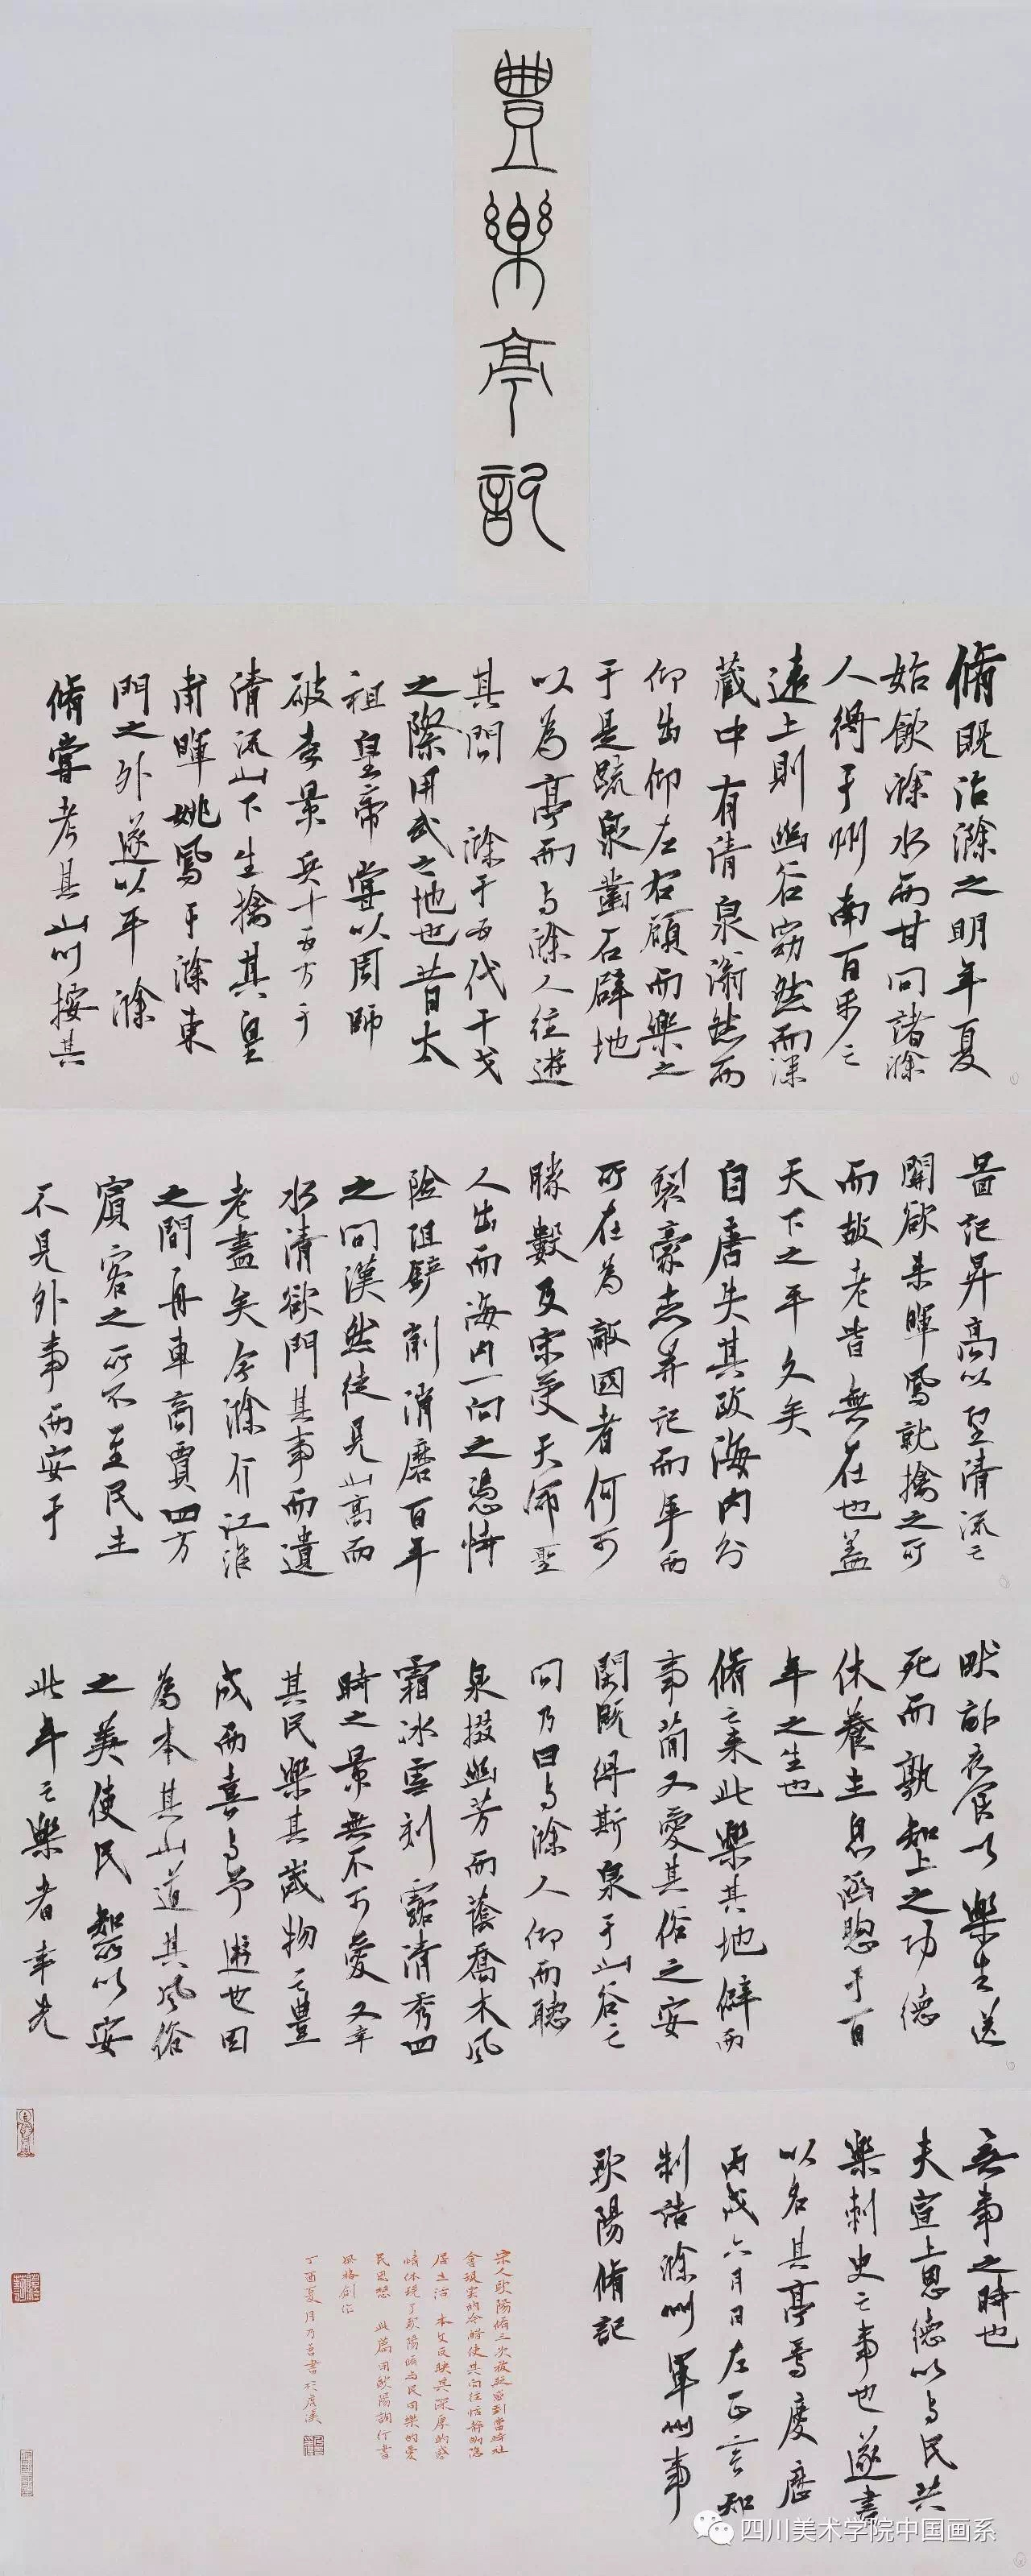 豐樂亭記
脩既治滁之明年夏
始飲滁水而甘問諸滁
人得于州南百步之
遠上則幽谷窈然而深
藏中有清泉滃然而
仰出仰左右顧而樂之
于是疏泉鑿石辟地
以為亭而与滁人往遊
其間 滁于五代干戈
之際用武之地也昔太
祖皇帝嘗以周師
破李景兵十五万于
清流山下生擒其皇
甫暉姚鳳于滁東
門之外遂以平滁
脩嘗考其山川按其
圖記昇高以望清流之
關欲求暉鳳就擒之所
而故老皆無在也蓋
天下之平久矣
自唐失其政海内分
裂豪杰并記而争而
所在為敵國者何可
勝數及宋受天命聖
人出而海内一向之憑恃
險阻鏟削消磨百年
之间漠然徒見山高而
水清欲問其事而遺
老盡矣今滁介江淮
之間舟車商賈四方
賓客之所不至民生
不見外事而安于
畎畝衣食以樂生送
死而孰知上之功德
休養生息涵煦于百
年之生也
脩之來此樂其地僻而
事簡又愛其俗之安
閑既得斯泉于山谷之
间乃日与滁人仰而聽
泉掇幽芳而蔭喬木風
霜冰雪刻露清秀四
時之景無不可愛又幸
其民樂其歲物之豐
成而喜与予遊也因
為本其山道其風俗
之美使民知所以安
此年之樂者幸先
無事之時也
夫宣上恩德以与民共
樂刺史之事也遂書
以名其亭焉慶歷
丙戌六月日左正言知
制誥滁州軍州事
歐陽脩記
宋人歐陽脩三次被貶感到當時社
會現實的冷酷使其向往恬靜的隱
居生活 本文反映其深厚的感
情体現了歐陽脩与民同樂的愛
民思想 此篇用歐陽詢行書
風格創作
丁酉夏月乃吾書於虎溪
四川美术学院中国画系